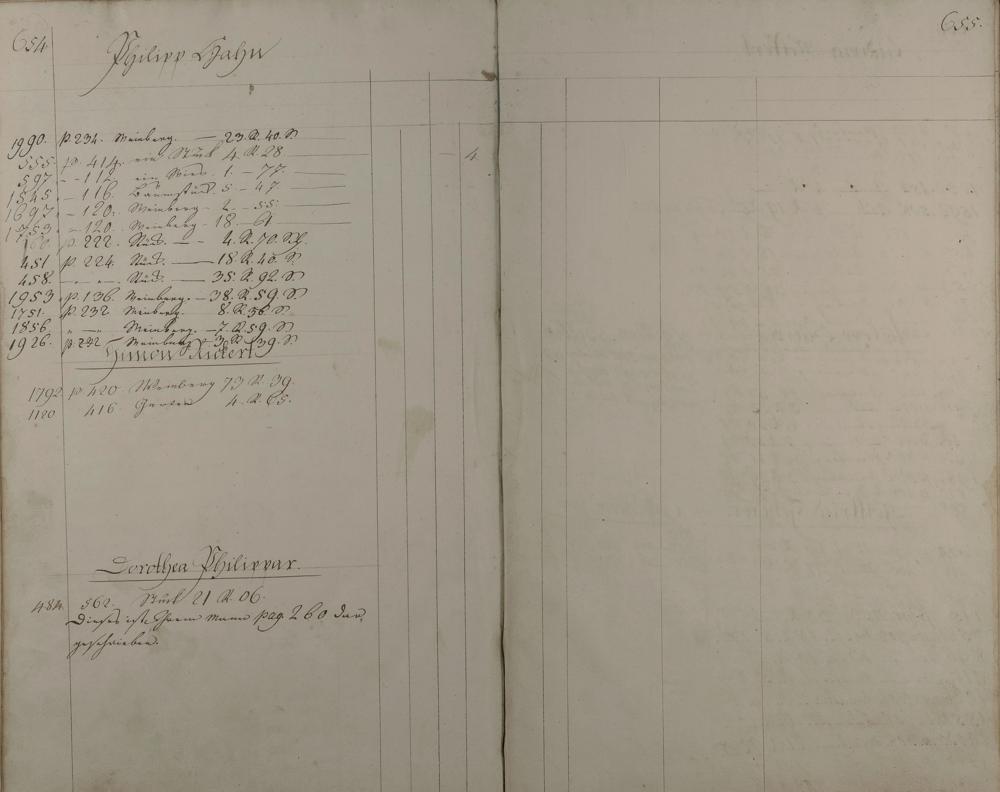 654.
655.
Philipp Hahn
1990. p. 234. Weinberg. — 23. R. 40. S.
555. p. 414. ein Stück 4. R. 28
597 - - 112. ein Wies. 1. - 77.
1545 - 116. Baumstück. 5 - 47.
1697 - 120. Weinberg - 2 - 55.
1753 - 120. Weinberg - 18. -
p. 222. Stück. - - 4. R. 70. Sch.
451 p. 224. Stück. — 18. R. 40. S.
458. - - - Stück. — 35. R. 92. S.
1953. p. 136. Weinberg. — 38. R. 59. S.
1751. p. 232. Weinberg. 8. R. 36 S.
1856. " — Weinberg. — 7. R. 59. S.
1926. p. 232 Weinberg - 3. R. 39. S.
4.
Simon Rickert
1792. p 420. Weinberg 73 R. 39.
1120 416 Garten 4. R. 65.
Dorothea Philippar.
484. 562. Stück 21 R. 06.
Dieses ist ihrem Mann pag. 260 dar,
geschrieben.